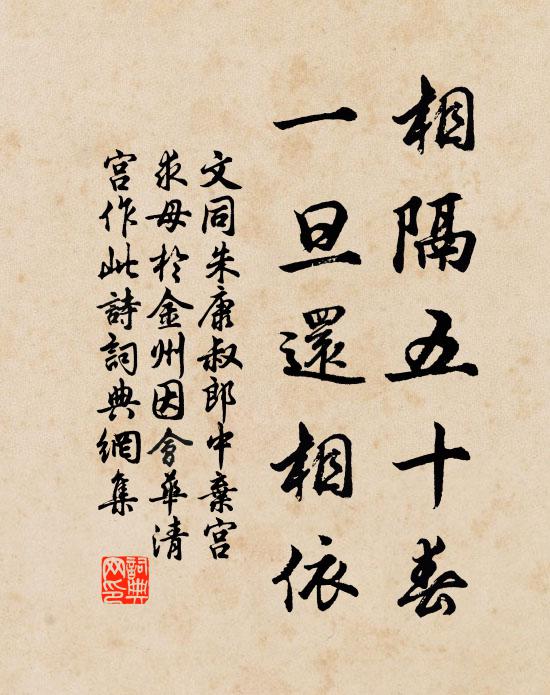 相隔五十春
一旦還相依
文同朱康叔郎中棄宮
求母於金州因會華清
宮作此詩詞典網集
詞典
网印